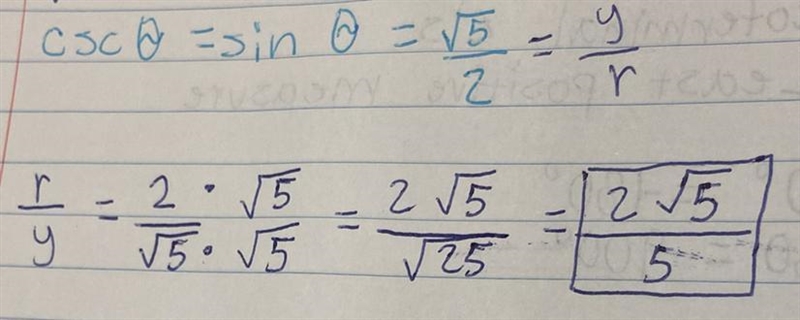 csc θ = sin θ = √5/2 = y/r
r/y = 2 · √5/√5 · √5 = 2√5/√25 = 2√5/5